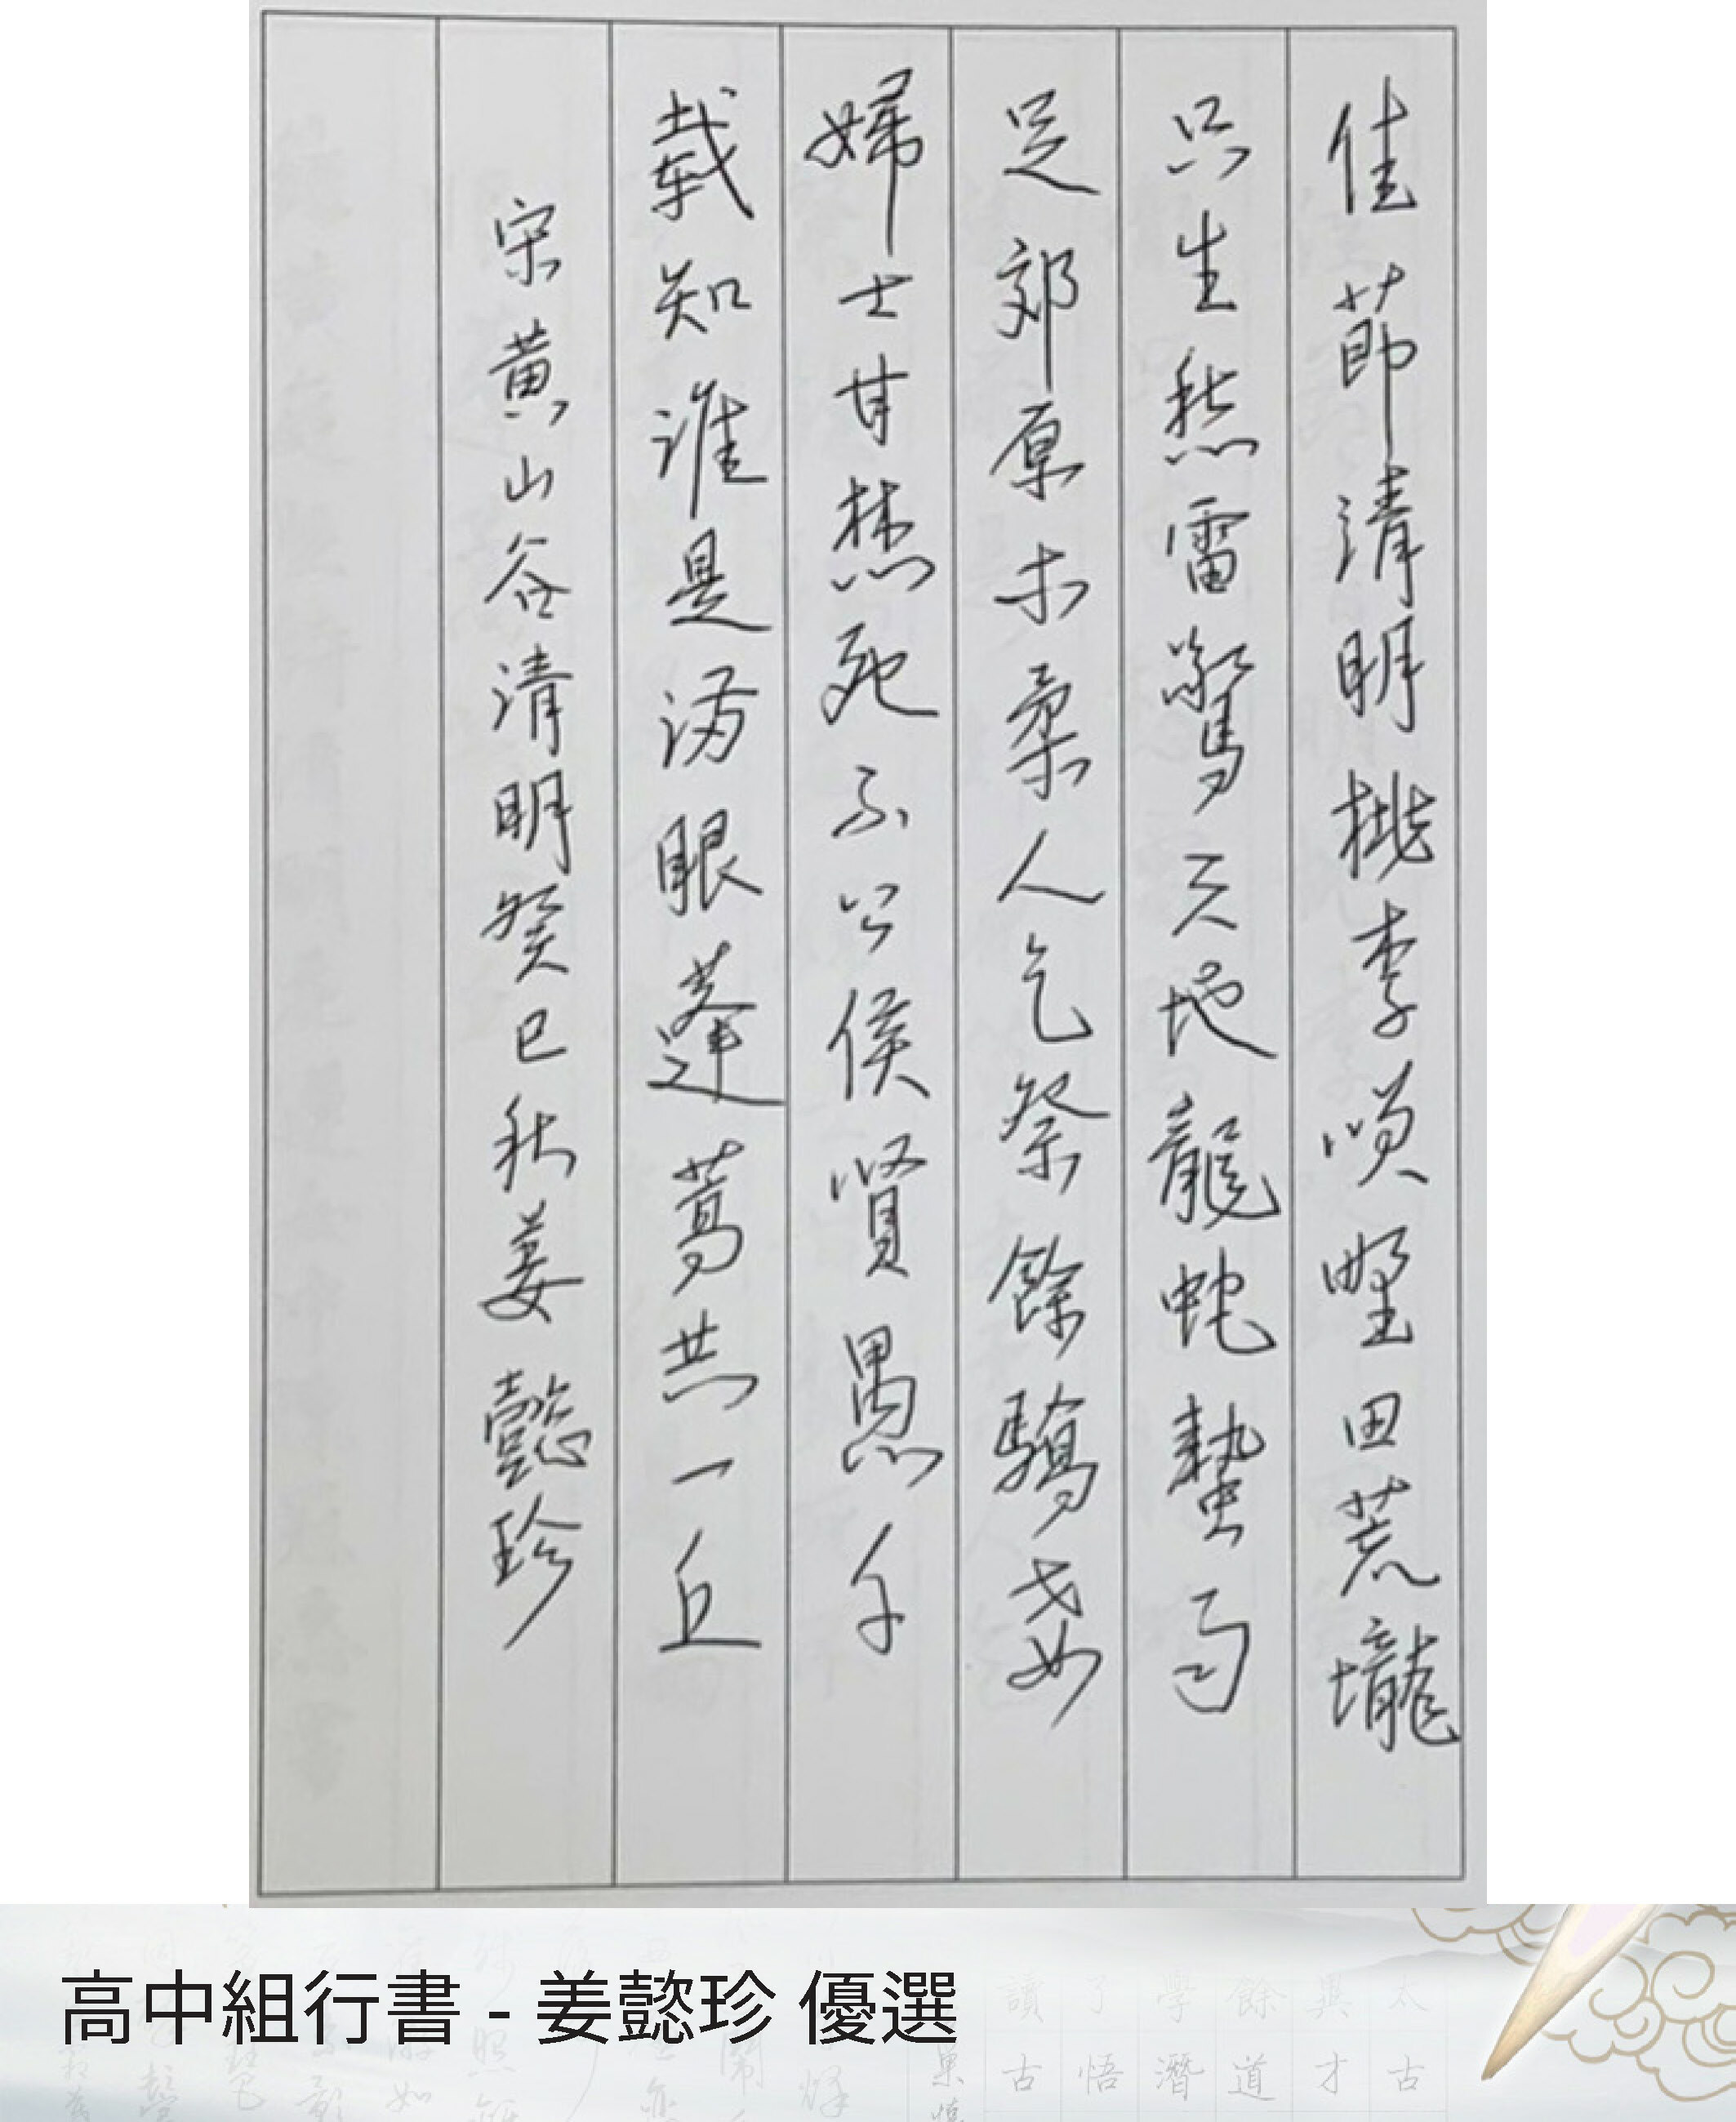 佳節清明桃李笑野田荒壠
只生愁雷驚天地龍蛇蟄雨
足郊原草木柔人乞祭餘驕妾
婦士甘焚死不公侯賢愚千
載知誰是滿眼蓬蒿共一丘
宋黃山谷清明癸巳秋姜懿珍
高中組行書 - 姜懿珍 優選
讀了學餘與太
古悟潛道才古